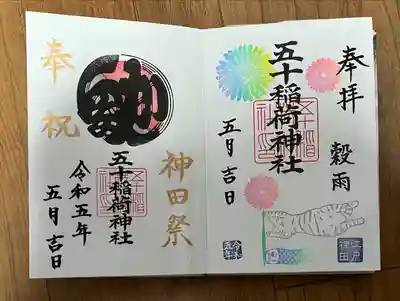 奉拝
穀雨
五十稲荷神社
五月吉日
江戸
神田
令和
五年
奉祝
神田祭
五十稲荷神社
令和五年
五月吉日